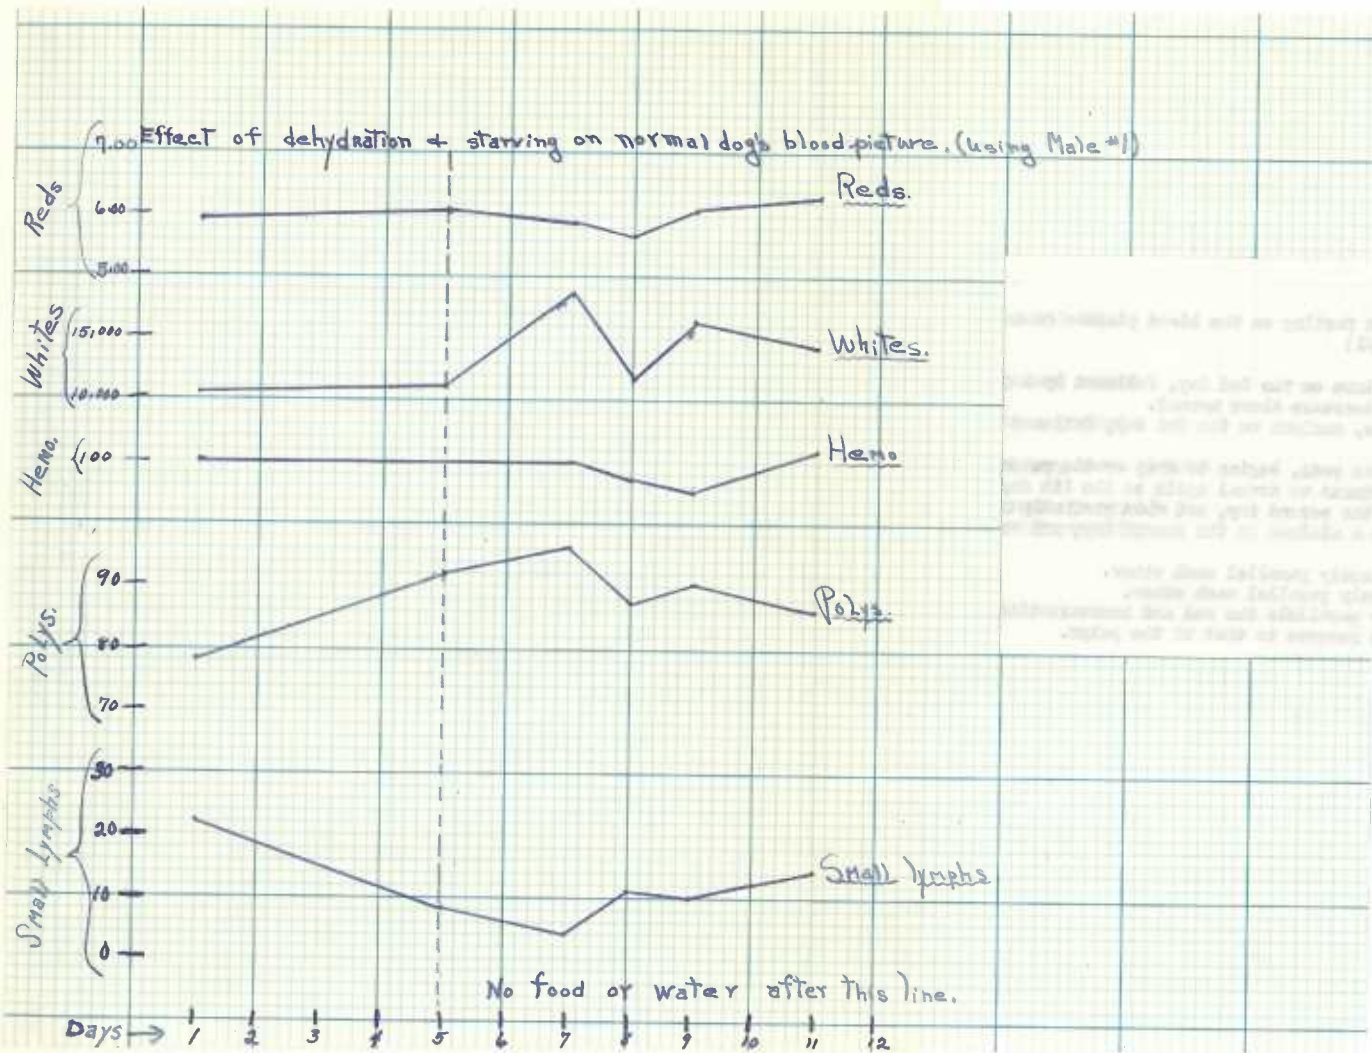 Effect of dehydration & starving on normal dog's blood-picture. (using Male #1)
Reds
7.00
6.00
5.00
Reds.
Whites
15,000
10,000
Whites.
Hemo.
100
Hemo
Polys.
90
80
70
Polys.
Small Lymphs
30
20
10
0
Small lymphs
No food or water after this line.
Days → 1 2 3 4 5 6 7 8 9 10 11 12